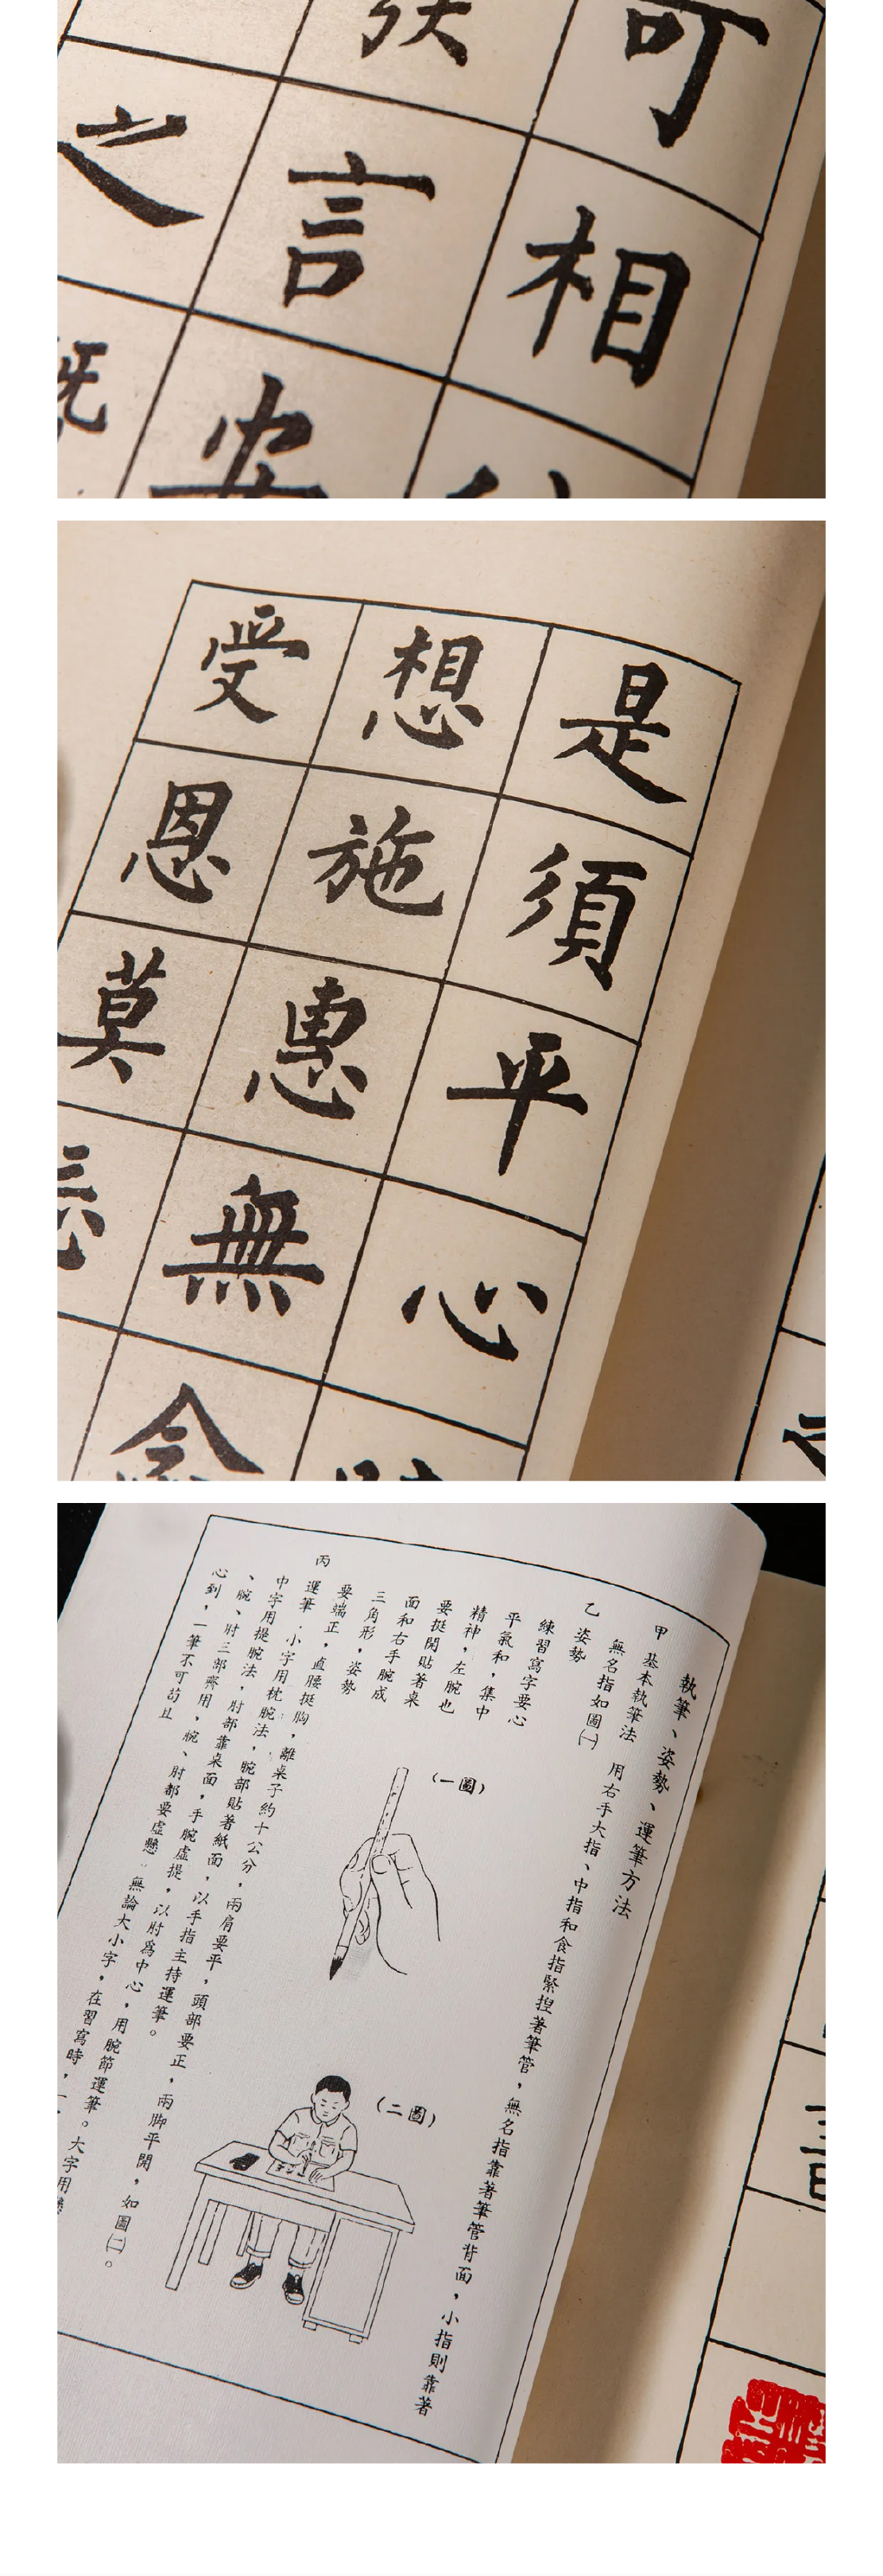 可相
言安
之既
是須平心
想施惠無念
受恩莫忘
執筆、姿勢、運筆方法
甲 基本執筆法 用右手大指、中指和食指緊揑著筆管，無名指靠著筆管背面，小指則靠著
無名指如圖㈠
乙 姿勢
練習寫字要心
平氣和，集中
精神，左腕也
要挺開貼著桌
面和右手腕成
三角形，姿勢
要端正，直腰挺胸，離桌子約十公分，兩肩要平，頭部要正，兩脚平開，如圖㈡。
丙 運筆．小字用枕腕法，腕部貼著紙面，以手指主持運筆。
中字用提腕法，肘部靠桌面，手腕虛提，以肘爲中心，用腕節運筆。大字用
、腕、肘三部齊用，腕、肘都要虛懸．無論大小字，在習寫時，一
心到，一筆不可苟且
(一圖)
(二圖)